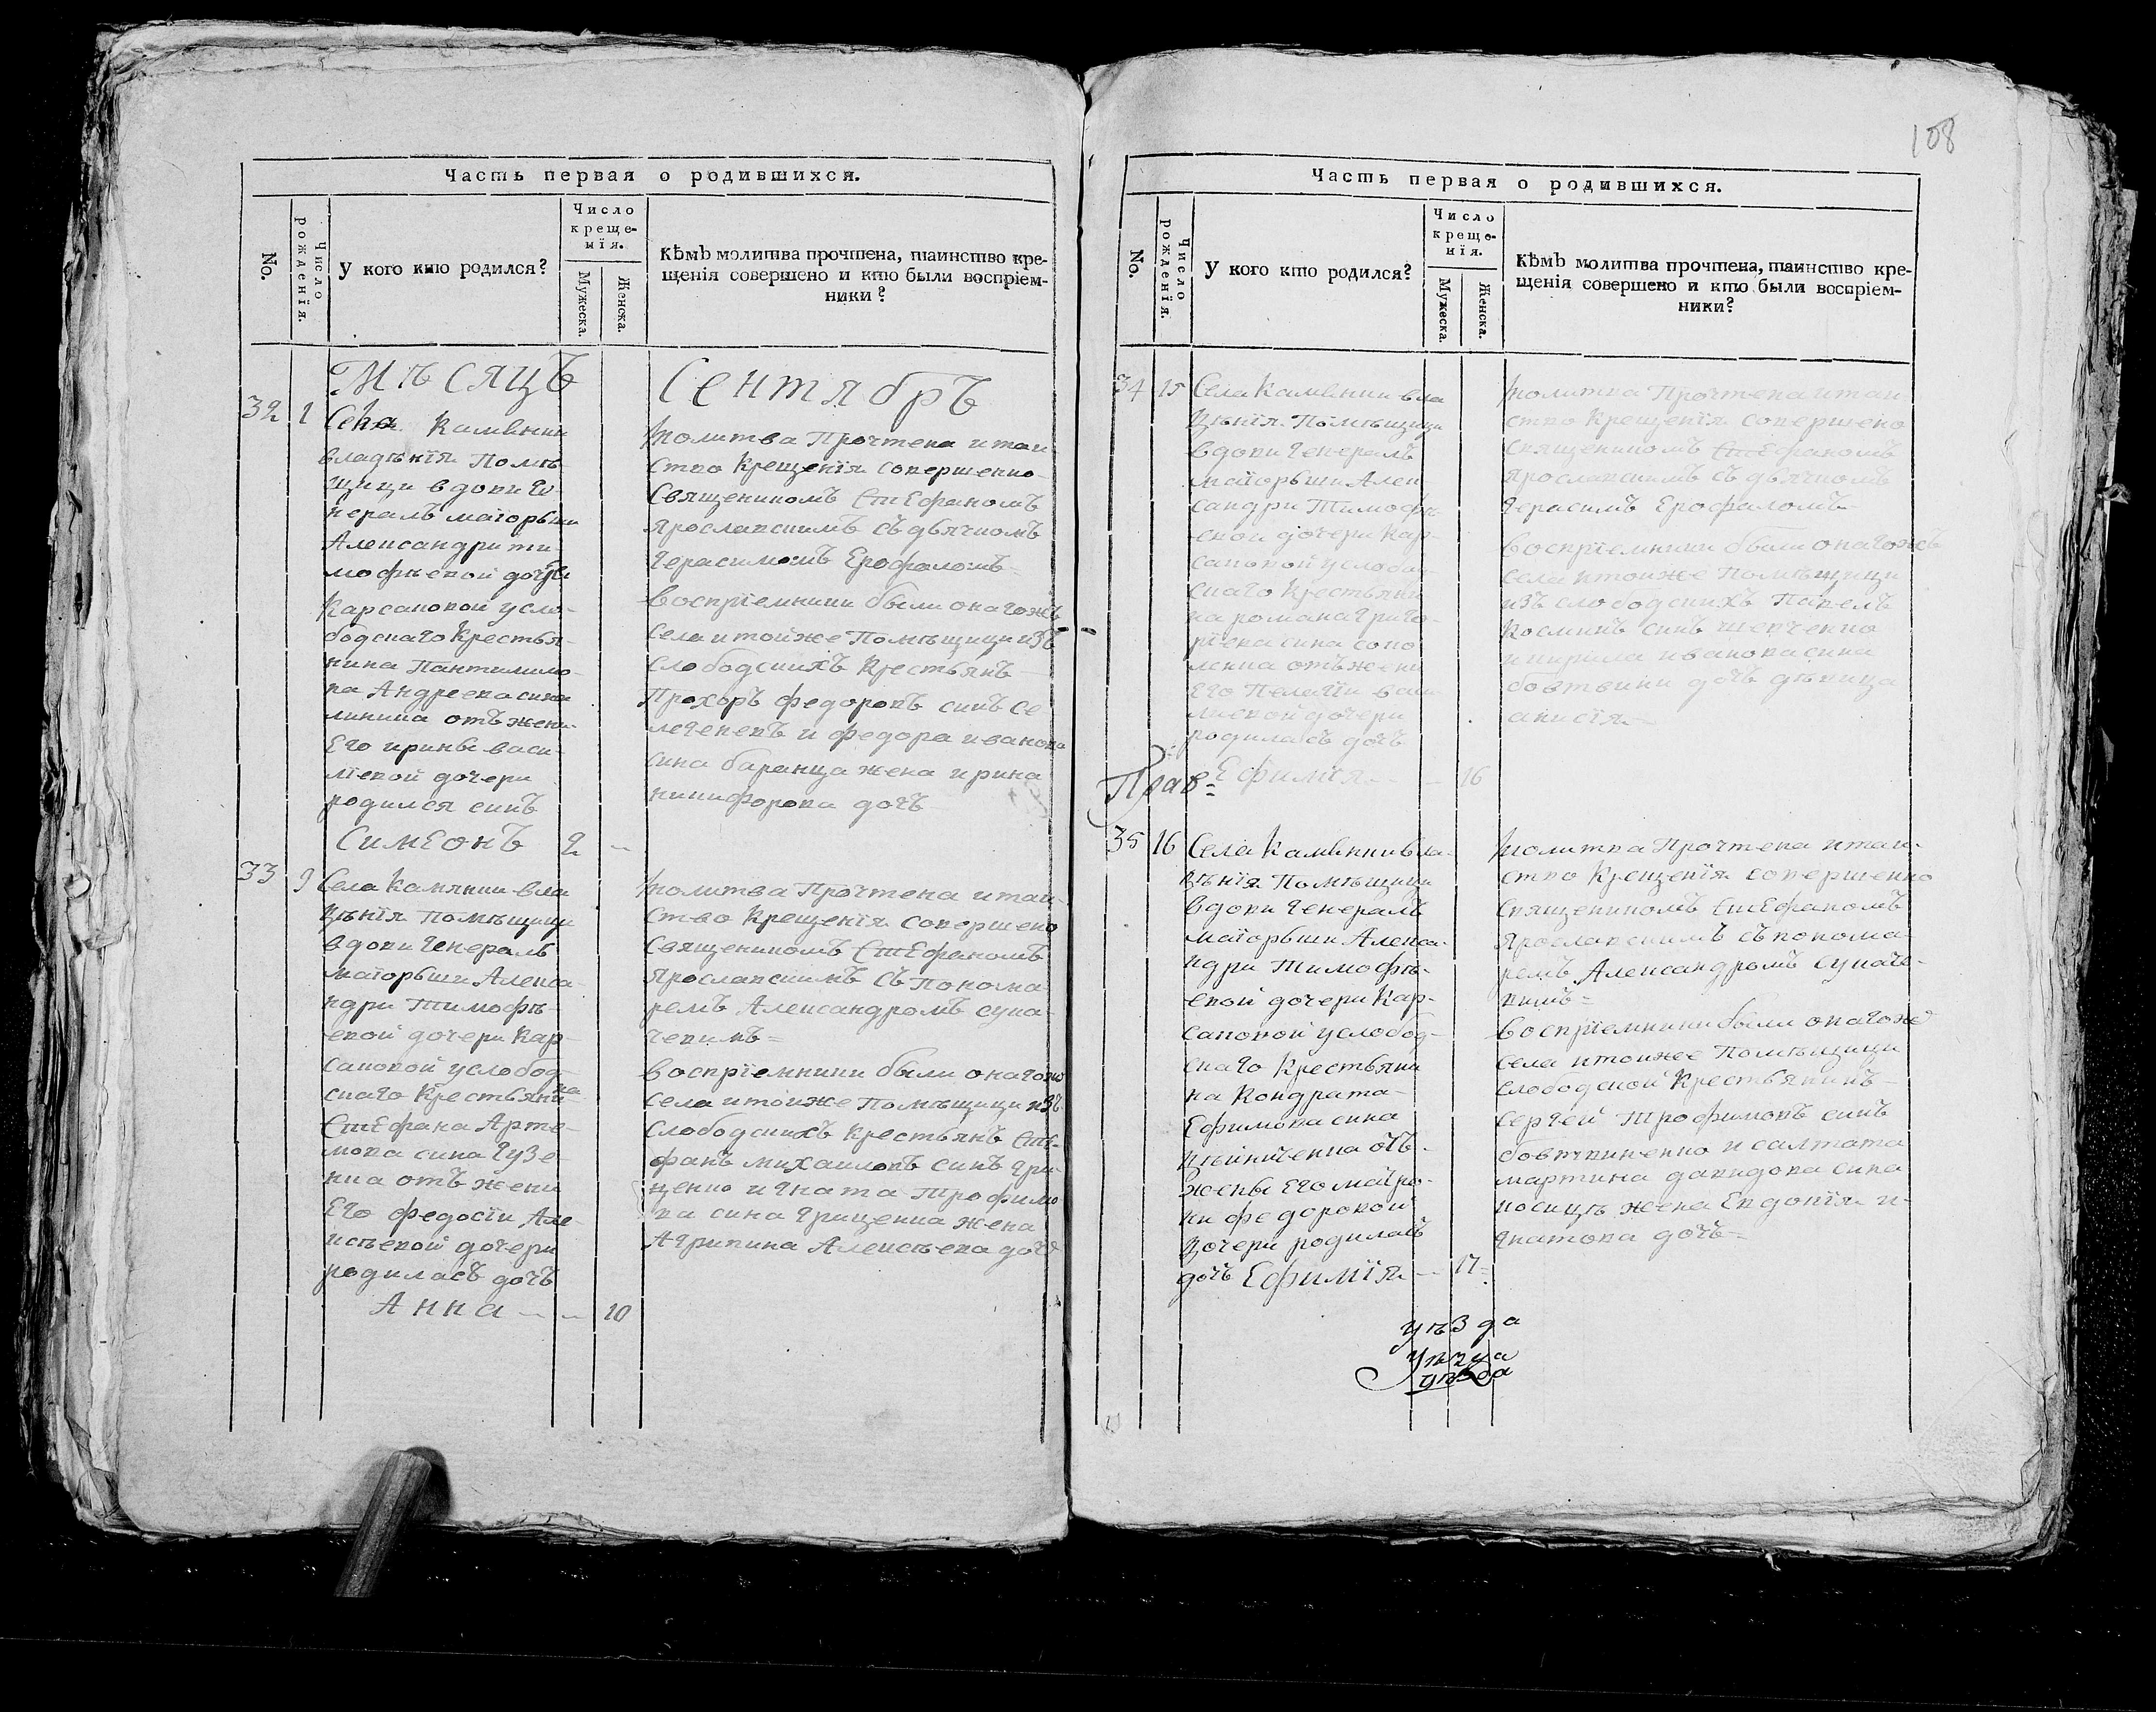 108
Часть первая о родившихся.
No.
Число рожденія.
У кого кто родился?
Число креще-
нія.
Мужеска.
Женска.
Кѣмъ молитва прочтена, таинство кре-
щенія совершено и кто были воспріем-
ники?
Мѣсяцъ Сентябрь
32 1
Села Каменки
владѣнія Помѣ-
щици вдови Ге-
нералъ маіорьши
Александри Ти-
мофѣевой дочери
Карсаковой усло-
бодскаго Крестья-
нина Пантилимо-
на Андреева сина
отъ жени
Его ирины васи-
ліевой дочери
родился синъ
Симеонъ 2
молитва Прочтена и таи-
ство Крещенія совершенно
Священикомъ Стефаномъ
Ярославскимъ съ дьячкомъ
Герасимомъ Ерофаломъ
воспріемники были онагожъ
Села и тойже Помѣщици изъ
слободскихъ Крестьянъ
Прохоръ федоровъ синъ Се
и федора иванова
сина баранца жена ирина
никифорова дочъ
33 9
Села Камянки вла
дѣнія Помѣщици
вдови Генералъ
маіорьши Алекса-
ндри Тимофѣ-
евой дочери Кар-
саковой услобод-
скаго Крестьяни
на
Стефана Арте-
мова сина Гузе-
нка отъ жени
Его федосіи Але-
исѣевой дочери
родиласъ дочъ
Анна 10
молитва Прочтена и таи-
ство Крещенія совершено
Священикомъ Стефаномъ
Ярославскимъ съ Понома-
ремъ Александромъ Сука-
чевимъ =
воспріемники были онагожъ
села и тойже Помѣщици изъ
Слободскихъ Крестьянъ Сте-
фанъ михаиловъ синъ Гри-
ценко и Гната Трофимо
ва сина Гриценка жена
Агрипина Алексѣева дочъ
Часть первая о родившихся.
No.
Число рожденія.
У кого кто родился?
Число креще-
нія.
Мужеска.
Женска.
Кѣмъ молитва прочтена, таинство кре-
щенія совершено и кто были воспріем-
ники?
34 15
Села Каменки вла
дѣнія Помѣщици
вдови Генералъ
маіорьши Алек
сандри Тимофѣ
евой дочери Кар-
саковой услобод-
скаго Крестьяни
на романа Григо-
ріева сина соко
ленка отъ жени
Его Пелагіи васи-
ліевой дочери
родиласъ дочъ
Ефимія 16
Прав=
молитва Прочтена и таи
ство Крещенія совершено
Священикомъ Стефаномъ
Ярославскимъ съ дьячкомъ
Герасимъ Ерофаломъ
воспріемники были онагожъ
села и тоиже Помѣщици
изъ слободскихъ Павелъ
Косминъ синъ
и кирила иванова сина
дочъ дѣвица
анисія
35 16
Села Каменки вла-
дѣнія Помѣщици
вдови Генералъ
маіорьши Алекса-
ндри Тимофѣ-
евой дочери Кар-
саковой услобод-
скаго Крестьяни
на Кондрата
Ефимова сина
отъ
жены Его матро-
ни федоровой
дочери родиласъ
дочъ Ефимія 17=
молитва Прочтена и таи-
ство Крещенія совершенно
Священикомъ Стефаномъ
Ярославскимъ съ понома-
ремъ Александромъ Сукаче-
вимъ=
воспріемники были онагожъ
села и тоиже Помѣщици
слободской Крестьянинъ
Сергей Трофимовъ синъ
и салтата
мартина давидова сина
жена Евдокія и-
гнатова дочъ=
уѣзда
уѣзда
уѣзда